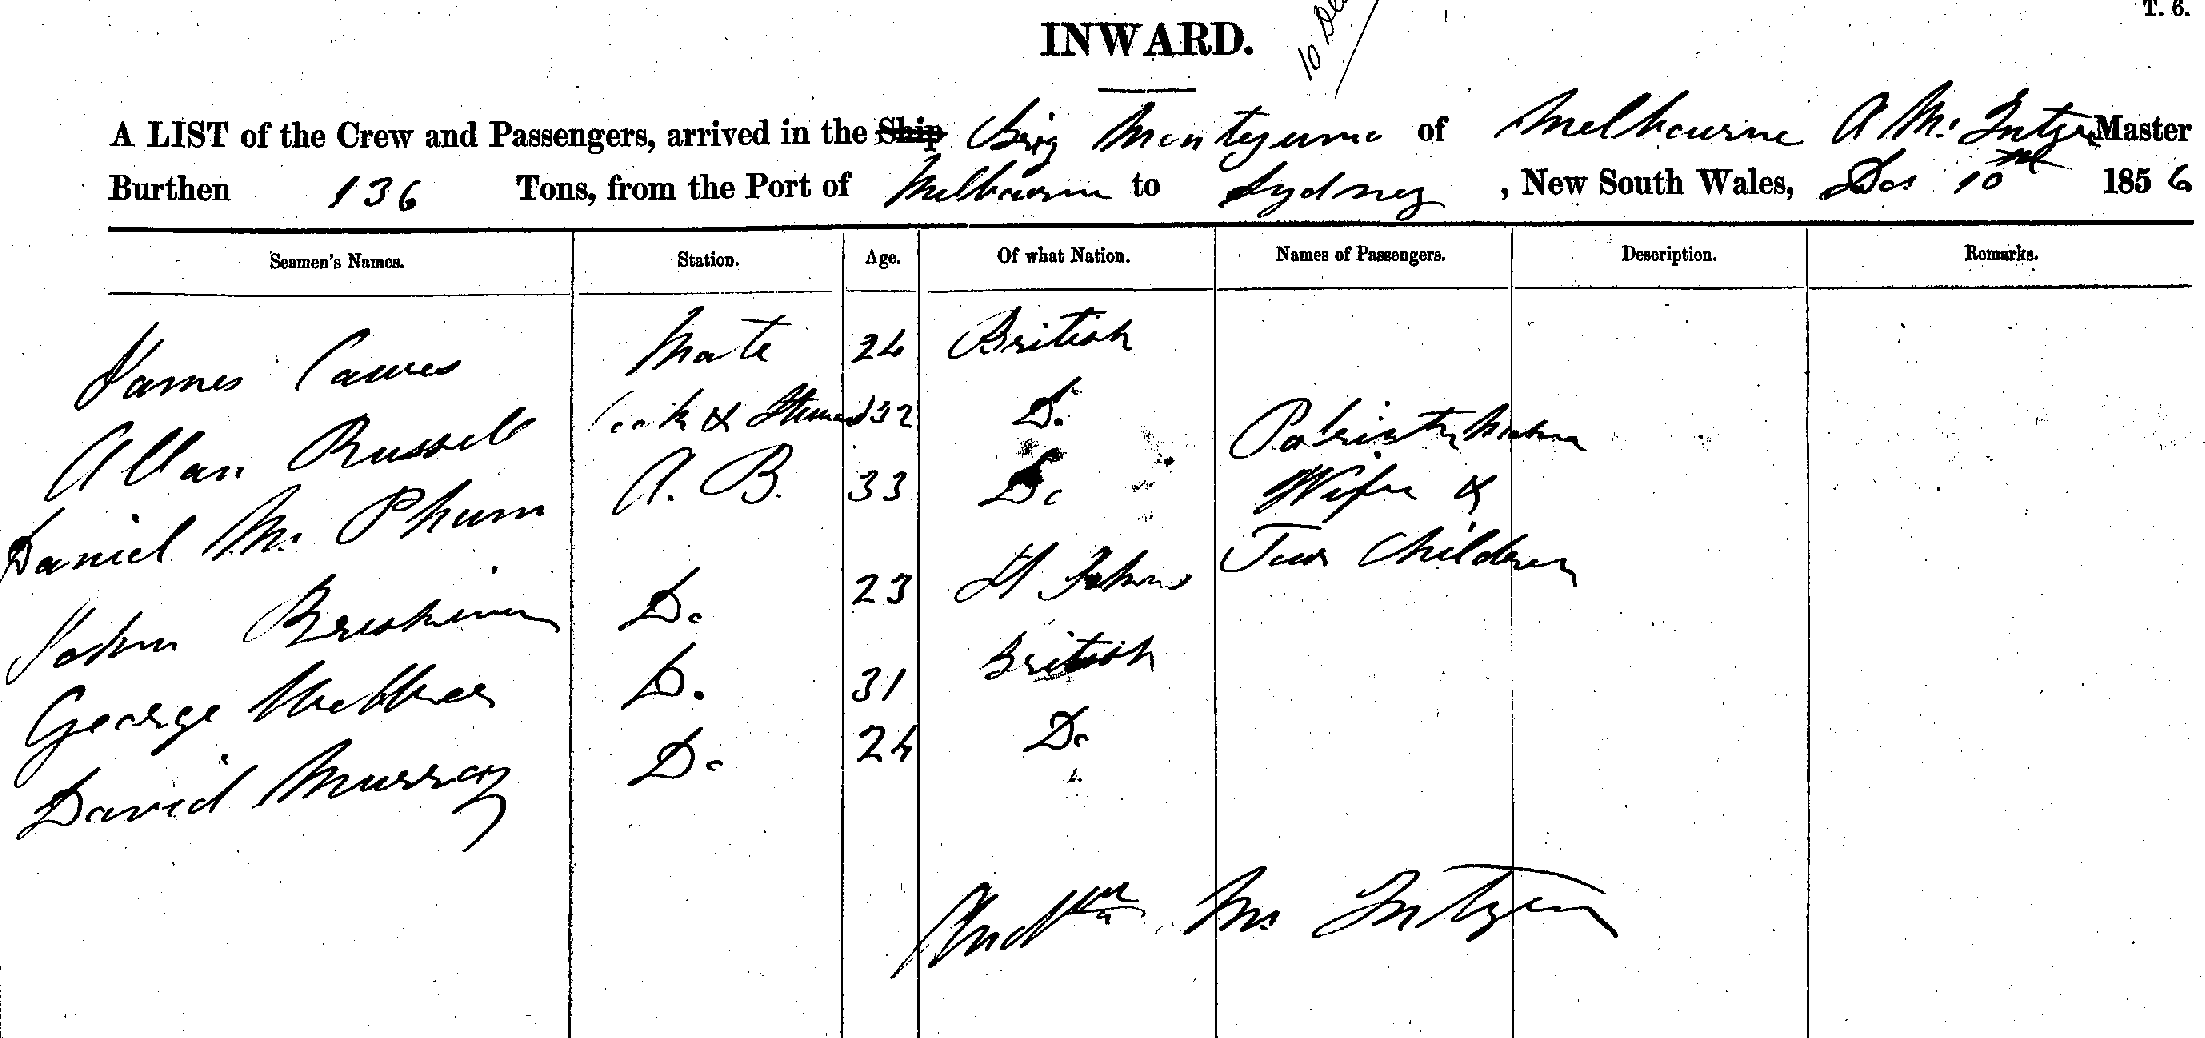 T. 6.
10 Dec
INWARD.
A LIST of the Crew and Passengers, arrived in the Ship Brig Montezuma of Melbourne A Mc Intyre Master
Burthen 136 Tons, from the Port of Melbourne to Sydney , New South Wales, Dec 10th 1856
Seamen's Names. Station. Age. Of what Nation. Names of Passengers. Description. Remarks.
James Mate 24 British
Allan Russell Cook & Steward 32 Do
Daniel Mc Phum A. B. 33 Do
Wife &
Two Children
John D. 23 St Johns
George D. 31 British
David Murray Do 24 Do
Mc Intyre